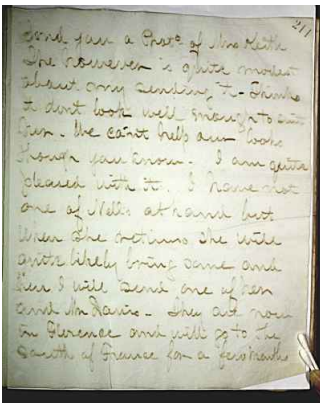 211
send you a Photo of Mrs Keith
She however is quite modest
about my sending it - Thinks
it dont look well enough to suit
her - We cant help our looks
though you know. I am quite
pleased with it. I have not
one of Nells at hand but
when she returns she will
quite likely bring some and
then I will send one of her
and Mr Davis - They are now
in Florence and will go to the
South of France for a few weeks